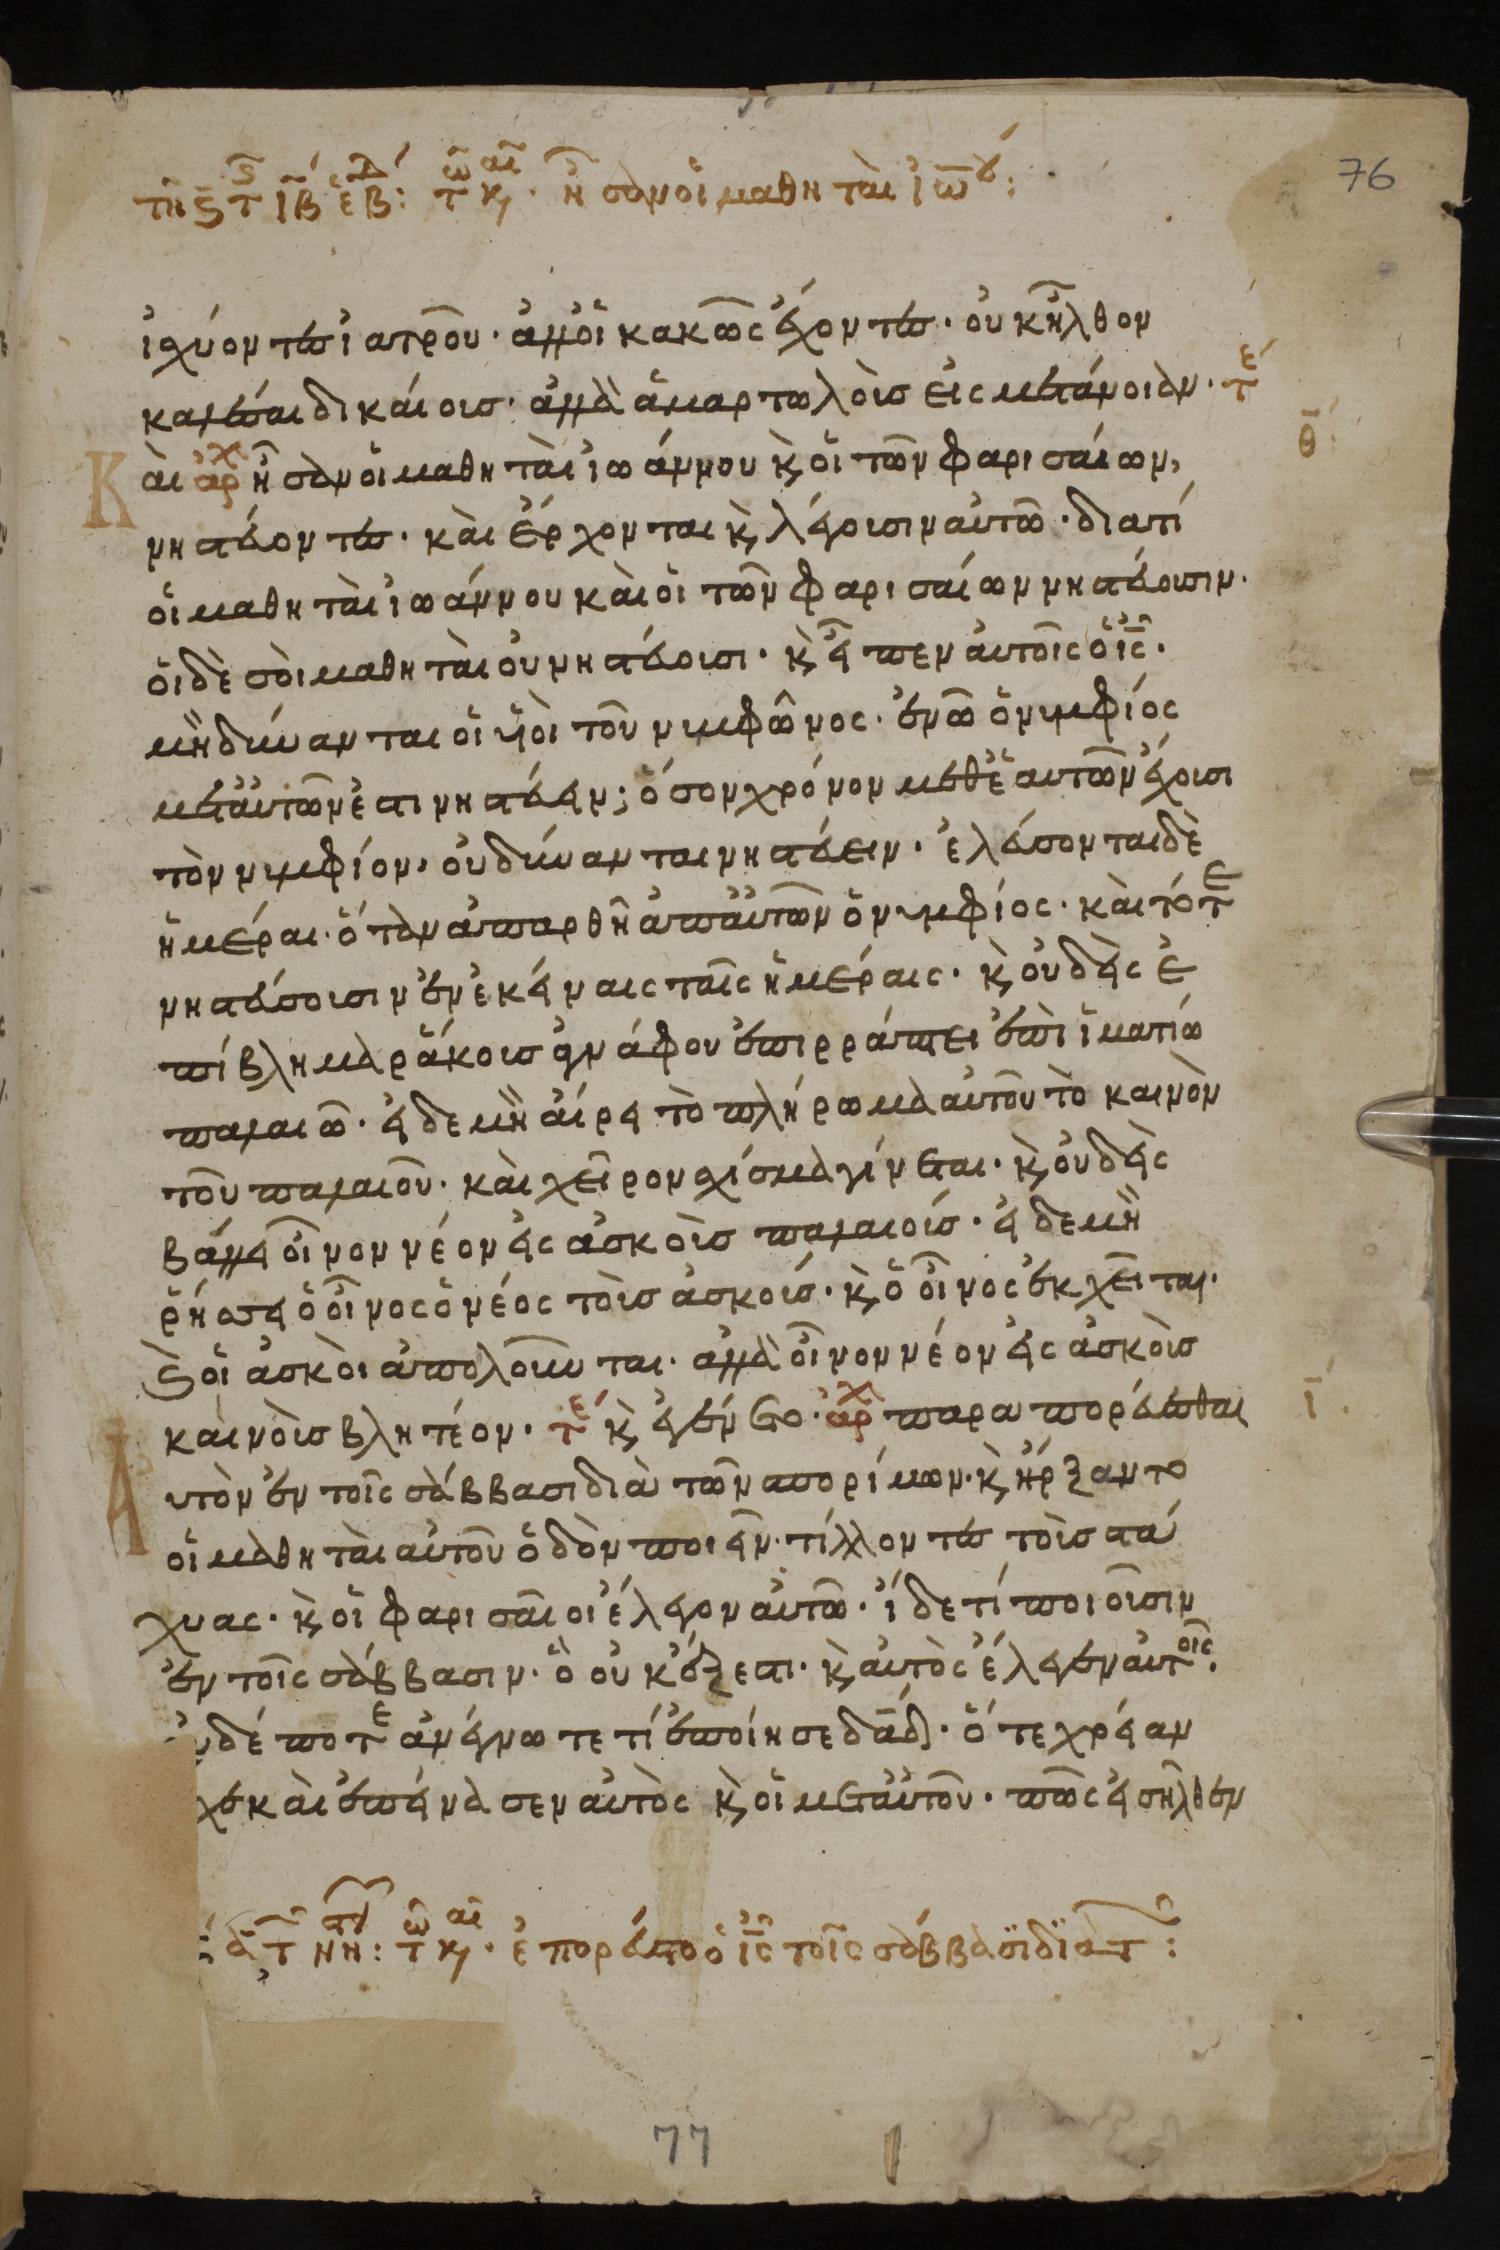 76
τῆ ϛ τ ιβ ἑβ: τῶ κ αι· ἦσαν οἱ μαθηταὶ ἰω:
ἰσχύοντες ἰατροῦ· ἀλλ' οἱ κακῶς ἔχοντες· οὐκ ἦλθον
καλέσαι δικαίους· ἀλλὰ ἁμαρτωλοὺς εἰς μετάνοιαν· τε
θ
Και αρχ ἦσαν οἱ μαθηταὶ ἰωάννου κ οἱ τῶν φαρισαίων,
νηστεύοντες· καὶ ἔρχονται κ λέγουσιν αὐτῶ· διατί
οἱ μαθηταὶ ἰωάννου καὶ οἱ τῶν φαρισαίων νηστεύουσιν·
οἱ δὲ σοὶ μαθηταὶ οὐ νηστεύουσι· κ εἶπεν αὐτοῖς ὁ ις·
μὴ δύνανται οἱ υἱοὶ τοῦ νυμφῶνος· ἐν ῶ ὁ νυμφίος
μετ' αὐτῶν ἐστι νηστεύειν; ὅσον χρόνον μεθ' ἑαυτῶν ἔχουσι
τὸν νυμφίον, οὐ δύνανται νηστεύειν· ἐλεύσονται δὲ
ἡμέραι· ὅταν ἀπαρθῆ ἀπ' αὐτῶν ὁ νυμφίος· καὶ τότε
νηστεύσουσιν ἐν ἐκείναις ταῖς ἡμέραις· κ οὐδεὶς ἐ
πίβλημα ῥάκους ἀγνάφου ἐπιρράπτει ἐπὶ ἱματίω
παλαιῶ· εἰ δε μὴ αἴρει τὸ πλήρωμα αὐτοῦ τὸ καινὸν
τοῦ παλαιοῦ· καὶ χεῖρον σχίσμα γίνεται· κ οὐδεὶς
βάλλει οἶνον νέον εἰς ἀσκοὺς παλαιούς· εἰ δε μὴ
ῥήσσει ὁ οἶνος ὁ νέος τοὺς ἀσκούς· κ ὁ οἶνος ἐκχεῖται·
κ οἱ ἀσκοὶ ἀπολοῦνται· ἀλλὰ οἶνον νέον εἰς ἀσκοὺς
καινοὺς βλητέον· τε κ ἐγένετο· αρχ παραπορεύεσθαι
ι
Αυτὸν ἐν τοῖς σάββασι διὰ τῶν σπορίμων· κ ἤρξαντο
οἱ μαθηταὶ αὐτοῦ ὁδὸν ποιεῖν· τίλλοντες τοὺς στά
χυας· κ οἱ φαρισαῖοι ἔλεγον αὐτῶ· ἴδε τί ποιοῦσιν
ἐν τοῖς σάββασιν· ὃ οὐκ ἔξεστι· κ αὐτὸς ἔλεγεν αὐτοῖς·
υδέποτε ἀνέγνωτε τί ἐποίησε δαδ· ὅτε χρείαν
χε καὶ ἐπείνασεν αὐτὸς κ οἱ μετ' αὐτοῦ· πῶς εἰσῆλθεν
α τ νη: τῶ κ αι· ἐπορεύετο ὁ ις τοῖς σάββασι δια τ:
77